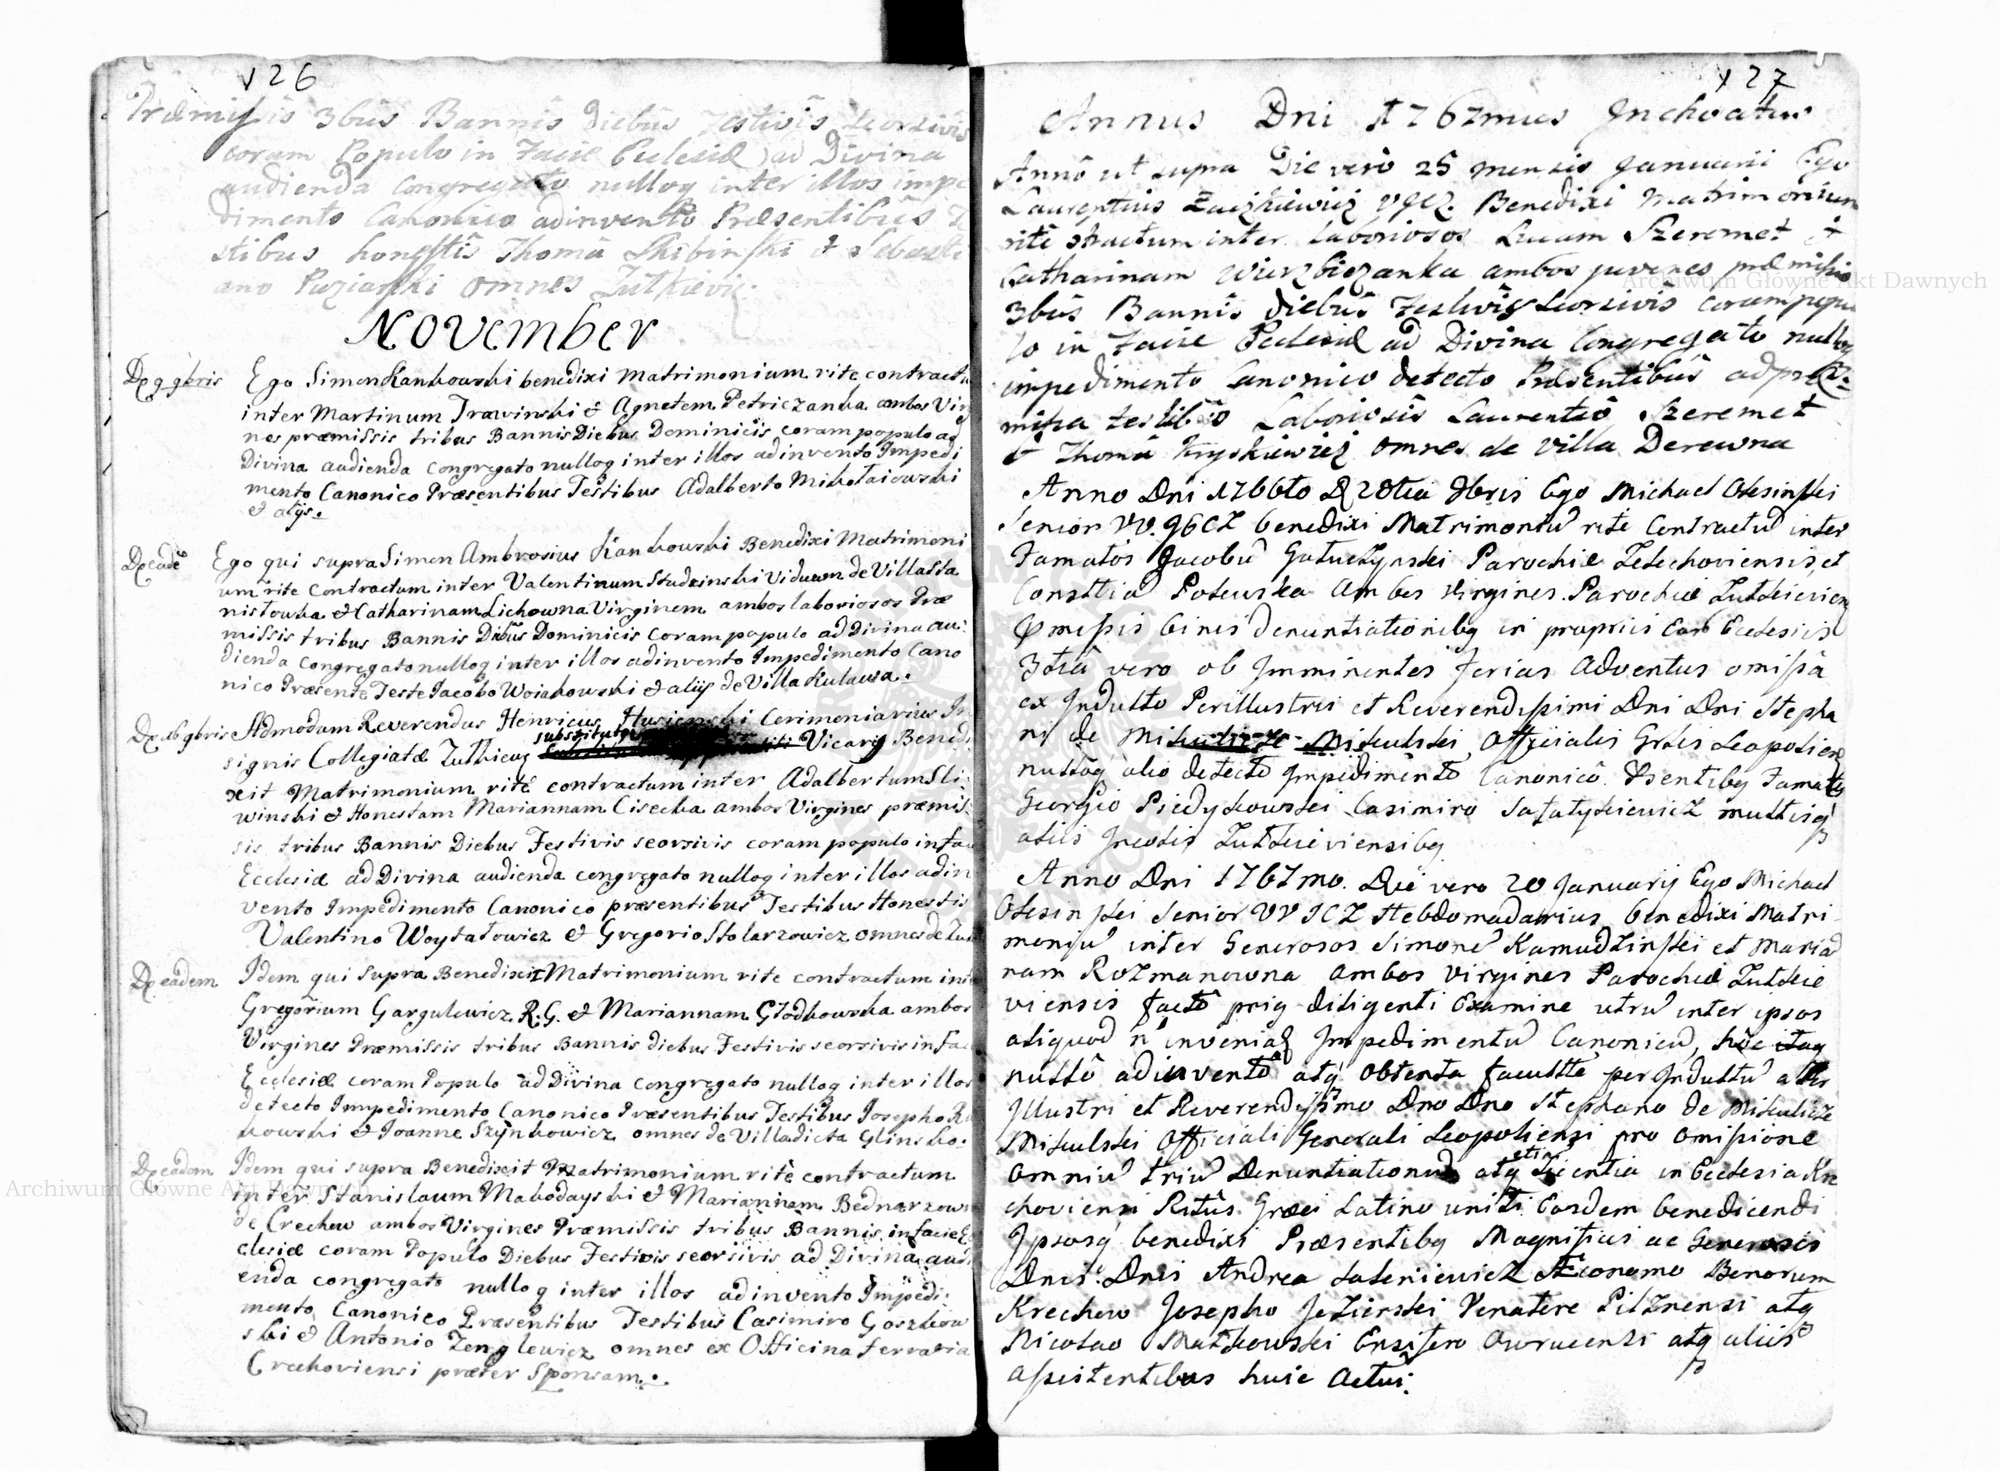 126
Præmissis 3bus Bannis Diebus Festivis Seorsivis
coram Populo in Facie Ecclesiæ ad Divina
audienda Congregato nulloq inter illos impe
dimento Canonico adinvento Præsentibus Te
stibus honestis Thoma Skibinski & Sebasti
ano Puziarski omnes Zutkievi
November
De 9 9bris Ego Simon Kankowski benedixi Matrimonium rite contractu
inter Martinum Trawinski & Agnetem Petriczanka ambos Virgi
nes præmissis tribus Bannis Diebus Dominicis coram populo ad
Divina audienda congregato nulloq inter illos adinvento Impedi
mento Canonico Præsentibus Testibus Adalberto Mikołaiowski
& alijs.
De eade Ego qui supra Simon Ambrosius Kankowski Benedixi Matrimoni
um rite contractum inter Valentinum Studzinski Viduum de Villa Sta
nisłowka & Catharinam Lichowna Virginem ambos laboriosos Præ
missis tribus Bannis Dibus Dominicis coram populo ad Divina au
dienda congregato nulloq inter illos adinvento Impedimento Cano
nico Præsente Teste Jacobo Woiakowski & alijs de Villa Kulawa.
De 16 9bris Admodum Reverendus Henricus Cerimoniarius In
signis Collegiatæ Zutkieus substitutus Vicarij Benedi
xit Matrimonium rité contractum inter Adalbertum Sli
winski & Honestam Mariannam Cisecka ambos Virgines præmis
sis tribus Bannis Diebus Festivis seorsivis coram populo in fac
Ecclesiæ ad Divina audienda congregato nulloq inter illos adin
vento Impedimento Canonico præsentibus Testibus Honestis
Valentino Woytałowicz & Gregorio Stolarzowicz omnes de Zut
De eadem Idem qui supra Benedixit Matrimonium rite contractum int
Gregorium Gargulewicz R.G. & Mariannam Głodkowska ambos
Virgines Præmissis tribus Bannis diebus Festivis seorsivis in fac
Ecclesiæ coram Populo ad Divina congregato nulloq inter illos
detecto Impedimento Canonico Præsentibus Testibus Josepho R
kowski & Joanne Szynkowicz omnes de Villa dicta Glinsko.
De eadem Idem qui supra Benedixit Matrimonium rité contractum
inter Stanislaum Makodayski & Mariannam Bednarzown
de Crechow ambos Virgines Præmissis tribus Bannis in facie E
clesiæ coram Populo Diebus Festivis seorsivis ad Divina audi
enda congregato nulloq inter illos adinvento Impedi
mento Canonico Præsentibus Testibus Casimiro Goszkow
ski & Antonio Zenglewicz omnes ex Officina ferraria
Crechoviensi præter Sponsam.
127
Annus Dni 1767mus Inchoatus
Anno ut supra Die vero 25 mensis Januarii Ego
Laurentius Zaczkiewicz VGCZ. Benedixi Matrimonium
rite contractum inter Laboriosos Lucam Szeremet &
Catharinam Wierzbiczanka ambos juvenes præmissis
3bus Bannis Diebus Festivis Seorsivis coram popu
lo in Facie Ecclesiæ ad Divina Congregato nulloq
impedimento Canonico detecto Præsentibus ad præ
missa testibus Laboriosis Laurentio Szeremet
& Thoma Kryskiewicz omnes de Villa Derewna
Anno Dni 1766to D 28va 8bris Ego Michael Olesinski
Senior VV. GCZ benedixi Matrimoniu rite Contractu inter
Famatos Jacobu Gałuczynski Parochiæ Zelechoviensis, et
Constia Potewska Ambos Virgines Parochiæ Zutkievien
Pmissis binis denuntiationibq in propriis Ecclesiis
3tia vero ob Imminentes Ferias Adventus omissa
ex Indulto Perillustris et Reverendissimi Dni Dni Stepha
ni de Mikulicze Mikulski Officialis Gnlis Leopolien
nulloq alio detecto Impedimento Canonico. Psentibq Famatis
Georgio Piedykowski Casimiro Sałatykiewicz multisq
aliis Incolis Zutkieviensibq
Anno Dni 1767mo. Die vero 20 Januarij Ego Michael
Olesinski Senior VV GCZ Hebdomadarius, benedixi Matri
moniu inter Generosos Simone Kamudzinski et Mariā
nam Rozmanowna ambos Virgines Parochiæ Zutkie
viensis facto prig diligenti Examine utru inter ipsos
aliquod n inveniaf Impedimentu Canonicu, hocitaq
nullo adinvento atq Obtenta facultte per Indultu ab
Illustri et Reverendissimo Dno Dno Stephano de Mikulicze
Mikulski Officiali Generali Leopoliensi pro omissione
omniu triu Denuntiationu atq etia Licentia in Ecclesia Kre
choviensi Ritus Græci Latino uniti Eosdem benedicendi
Ipsosq benedixi Præsentibq Magnificis ac Generosis
Dnis Dnis Andrea Saleniewicz Æconomo Bonorum
Krechow Josepho Jezierski Venatore Pilznensi atq
Nicolao Małkowski Ensifero Owrucensi atq aliis
assistentibus huic Actui.
Archiwum Główne Akt Dawnych
Archiwum Główne Akt Dawnych